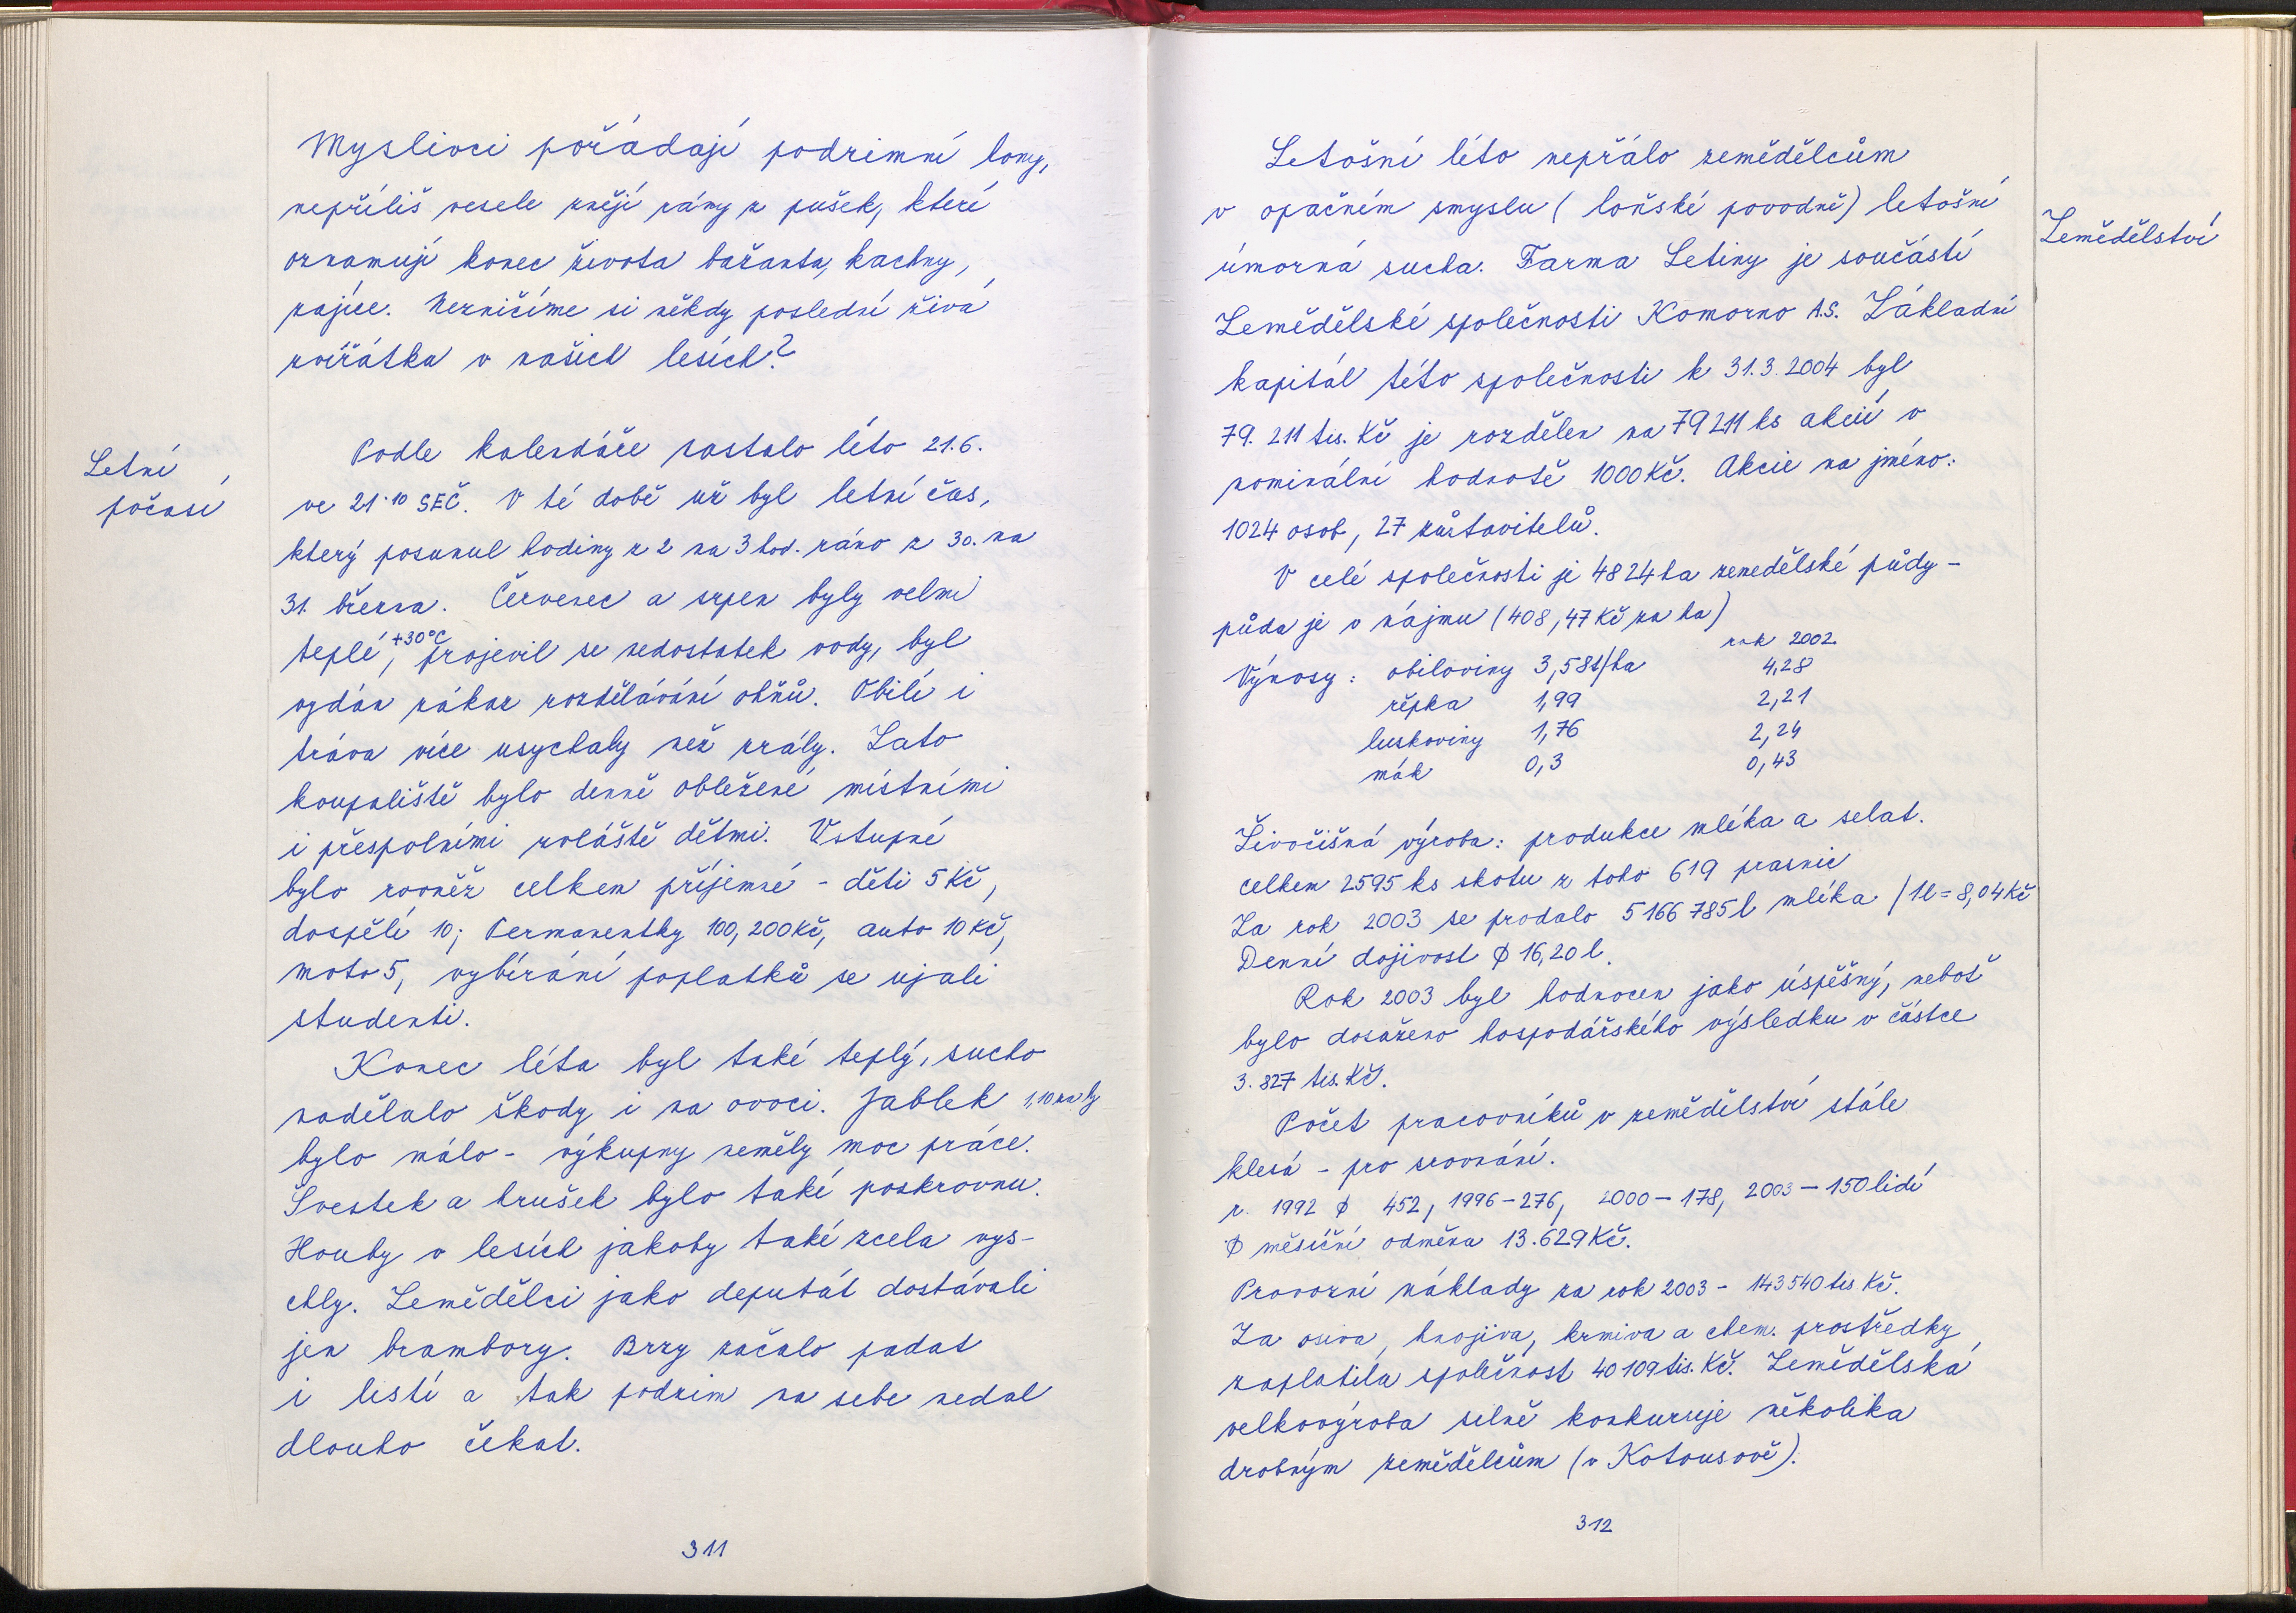 Myslivci pořádají podzimní lony,
nepříliš vesele znějí rány z pušek, které
oznamují konec života bažanta, kachny,
zajíce. Nezničíme si někdy poslední živá
zvířátka v našich lesích?
Letní
počasí
Podle kalendáře nastalo léto 21.6.
ve 21·10 SEČ. V té době už byl letní čas,
který posunul hodiny z 2 na 3 hod. ráno z 30. na
31. března. Červenec a srpen byly velmi
teplé, +30°C projevil se nedostatek vody, byl
vydán zákaz rozdělávání ohňů. Obilí i
tráva více usychaly než zrály. Zato
koupaliště bylo denně obležené místními
i přespolními zvláště dětmi. Vstupné
bylo rovněž celkem příjemné - děti 5 Kč,
dospělí 10; Permanentky 100, 200 Kč, auto 10 Kč,
moto 5, vybírání poplatků se ujali
studenti.
Konec léta byl také teplý, sucho
nadělalo škody i na ovoci. Jablek 1,10 za kg
bylo málo - výkupny neměly moc práce.
Švestek a hrušek bylo také poskrovnu.
Houby v lesích jakoby také zcela vys-
chly. Zemědělci jako deputát dostávali
jen brambory. Brzy začalo padat
i listí a tak podzim na sebe nedal
dlouho čekat.
311
Letošní léto nepřálo zemědělcům
v opačném smyslu (loňské povodně) letošní
úmorná sucha. Farma Letiny je součástí
Zemědělské společnosti Komorno A.S. Základní
kapitál této společnosti k 31.3.2004 byl
79.211 tis. Kč je rozdělen na 79211 ks akcií v
nominální hodnotě 1000 Kč. Akcie na jméno:
1024 osob, 27 zůstavitelů.
V celé společnosti je 4824 ha zemedělské půdy -
půda je v nájmu (408,47 Kč za ha)
rok 2002
Výnosy: obiloviny 3,58t/ha 4,28
řepka 1,99 2,21
luskoviny 1,76 2,24
mák 0,3 0,43
Živočišná výroba: produkce mléka a selat.
celkem 2595 ks skotu z toho 619 prasnic
Za rok 2003 se prodalo 5166 785 l mléka /1l = 8,04 Kč
Denní dojivost ϕ 16,20 l.
Rok 2003 byl hodnocen jako úspěšný, neboť
bylo dosaženo hospodářského výsledku v částce
3.827 tis. Kč.
Počet pracovníků v zemědělství stále
klesá - pro srovnání.
r. 1992 ϕ 452, 1996 - 276, 2000 - 178, 2003 - 150 lidí
ϕ měsíční odměna 13.629 Kč.
Provozní náklady za rok 2003 - 143 540 tis Kč.
Za osiva, hnojiva, krmiva a chem. prostředky
zaplatila společnost 40 109 tis. Kč. Zemědělská
velkovýroba silně konkuruje několika
drobným zemědělcům (v Kotousově).
312
Zemědělství